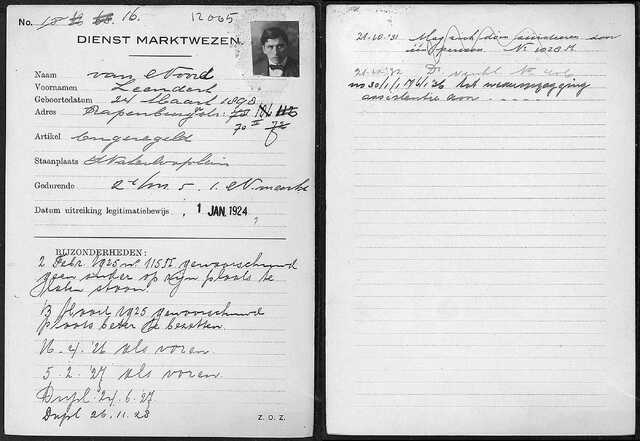 No. 16. 12065
DIENST MARKTWEZEN.
Naam van Noord
Voornamen Leendert
Geboortedatum 24 Maart 1898
Adres Rapenburgstr: 70 II
Artikel Ongeregeld
Staanplaats Waterlooplein
Gedurende 2e/m 5. 1. N. markt
Datum uitreiking legitimatiebewijs , 1 JAN. 1924
BIJZONDERHEDEN:
2 Febr. 1925 no. gewaarschuwd
geen ander op zijn plaats te
laten staan.
13 Maart 1925 gewaarschuwd
plaats beter te bezetten.
16. 4. '26 als voren.
5. 2. '27 als voren.
Dupl. 24. 6. '27.
Dupl 26. 11. 28
Z. O. Z.
21.10.'31 Mag zich doen assisteren door
één persoon No 1020 M
no 30/1/1 M 6/1/36 tot wederopzegging
assistentie van - - - - - - -